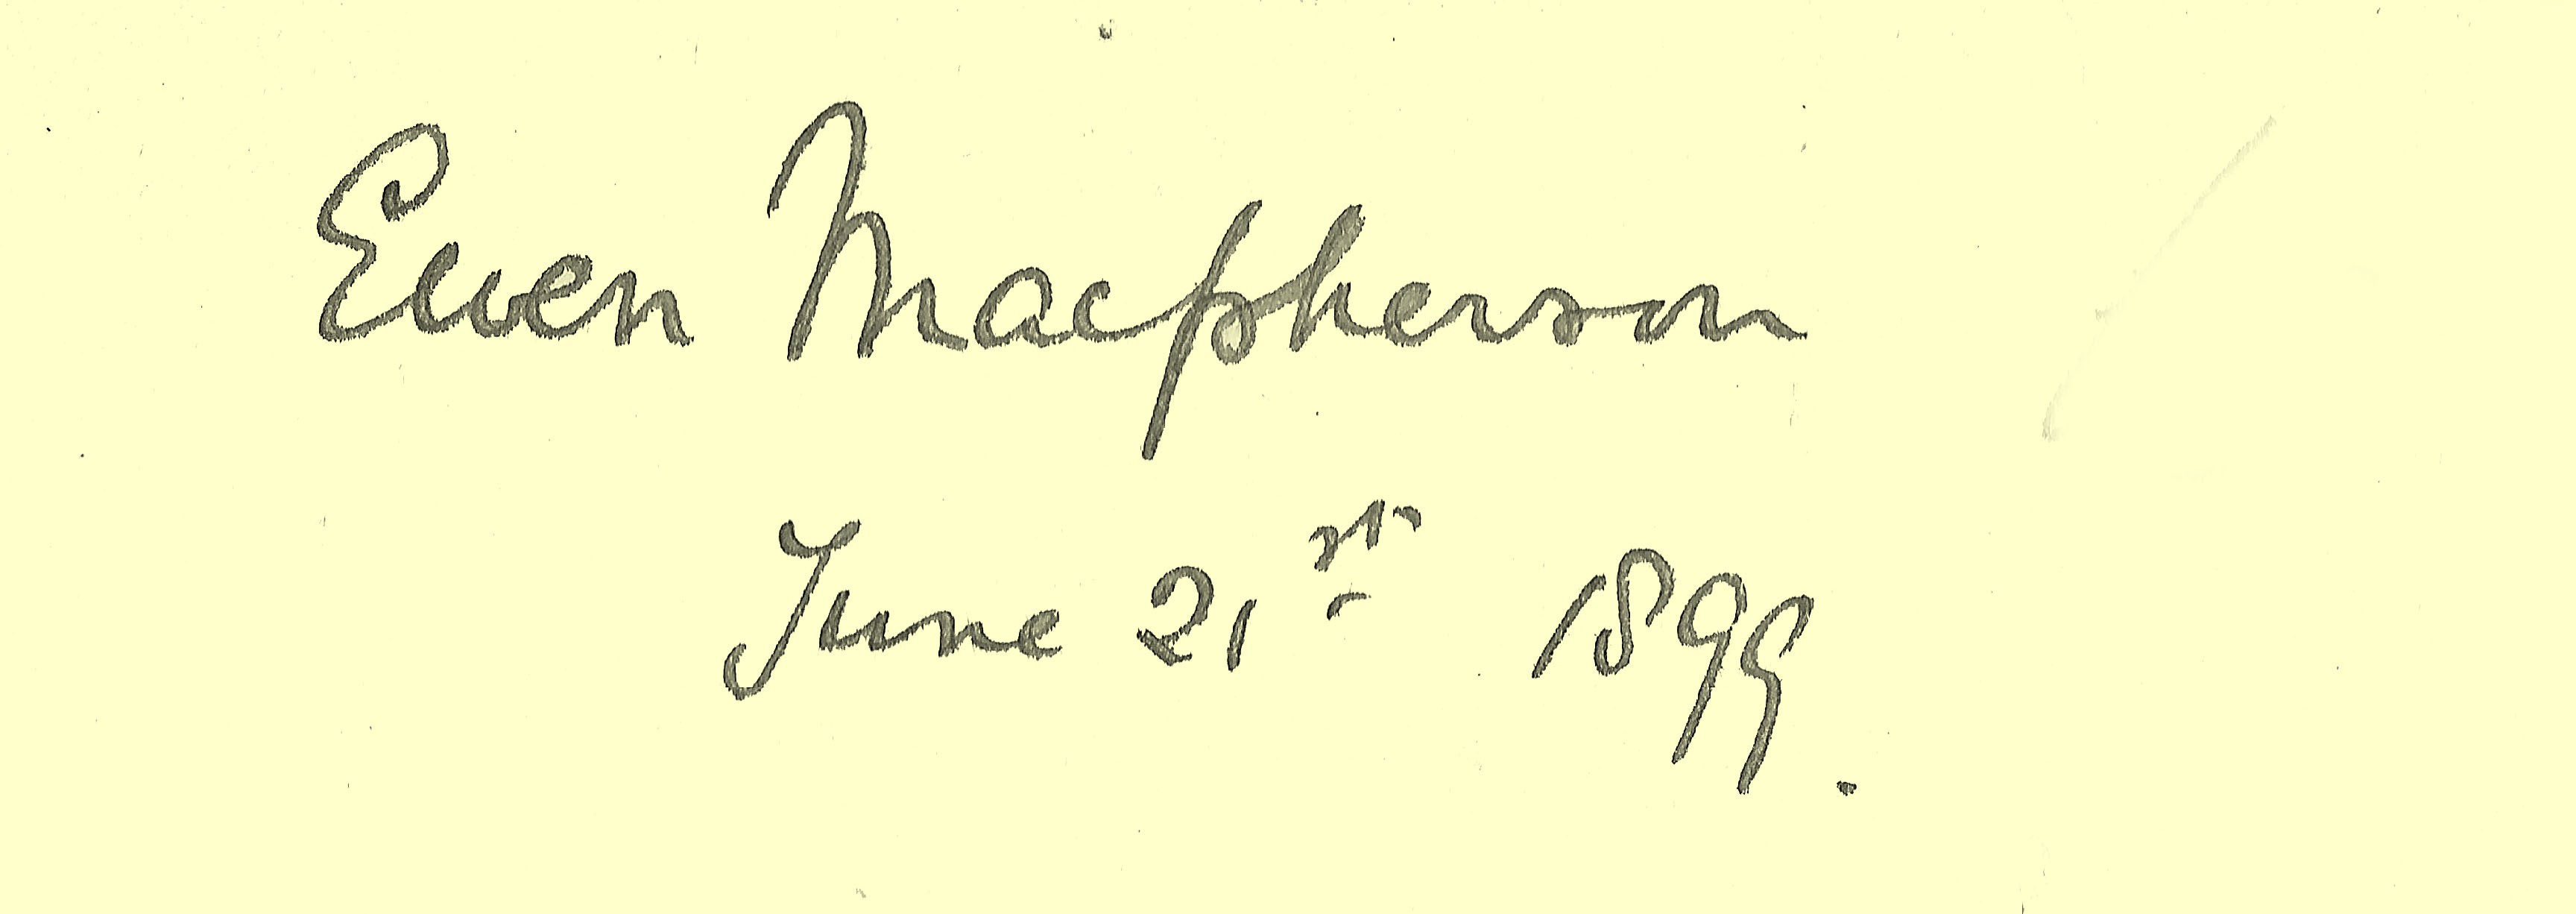 Ewen Macpherson
June 21st 1899.